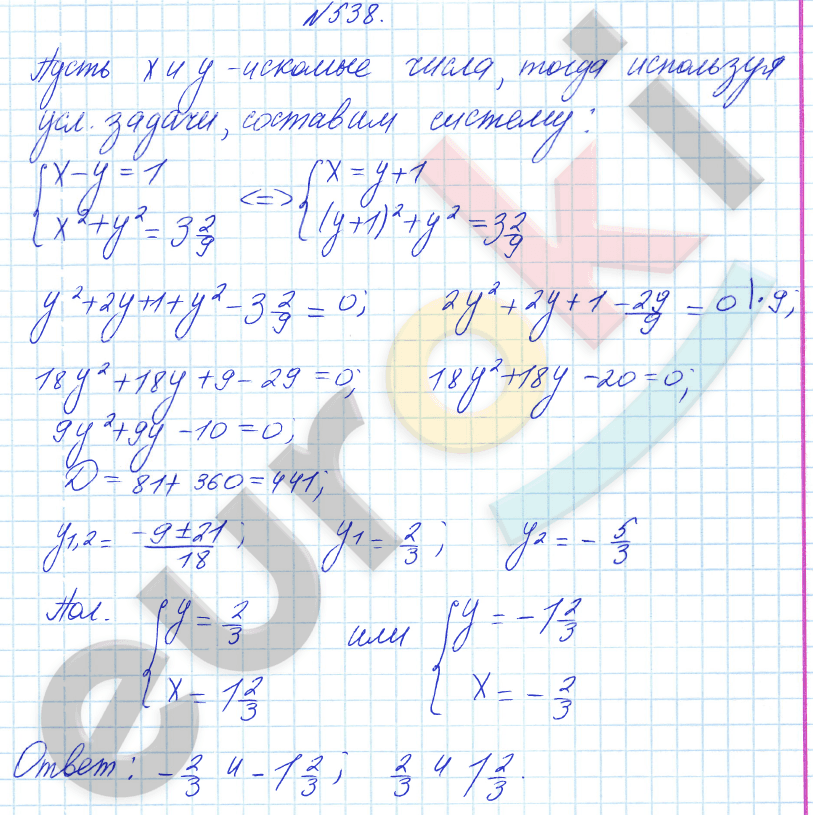 №538.
Пусть x и y - искомые числа, тогда используя
усл. задачи, составим систему:
{ x - y = 1 <=> { x = y + 1
{ x² + y² = 3 2/9 { (y+1)² + y² = 3 2/9
y² + 2y + 1 + y² - 3 2/9 = 0; 2y² + 2y + 1 - 29/9 = 0 |·9;
18y² + 18y + 9 - 29 = 0; 18y² + 18y - 20 = 0;
9y² + 9y - 10 = 0;
D = 81 + 360 = 441;
y1,2 = (-9 ± 21)/18; y1 = 2/3; y2 = - 5/3
Пол. { y = 2/3 или { y = -1 2/3
{ x = 1 2/3 { x = - 2/3
Ответ: - 2/3 и - 1 2/3; 2/3 и 1 2/3.
euroki